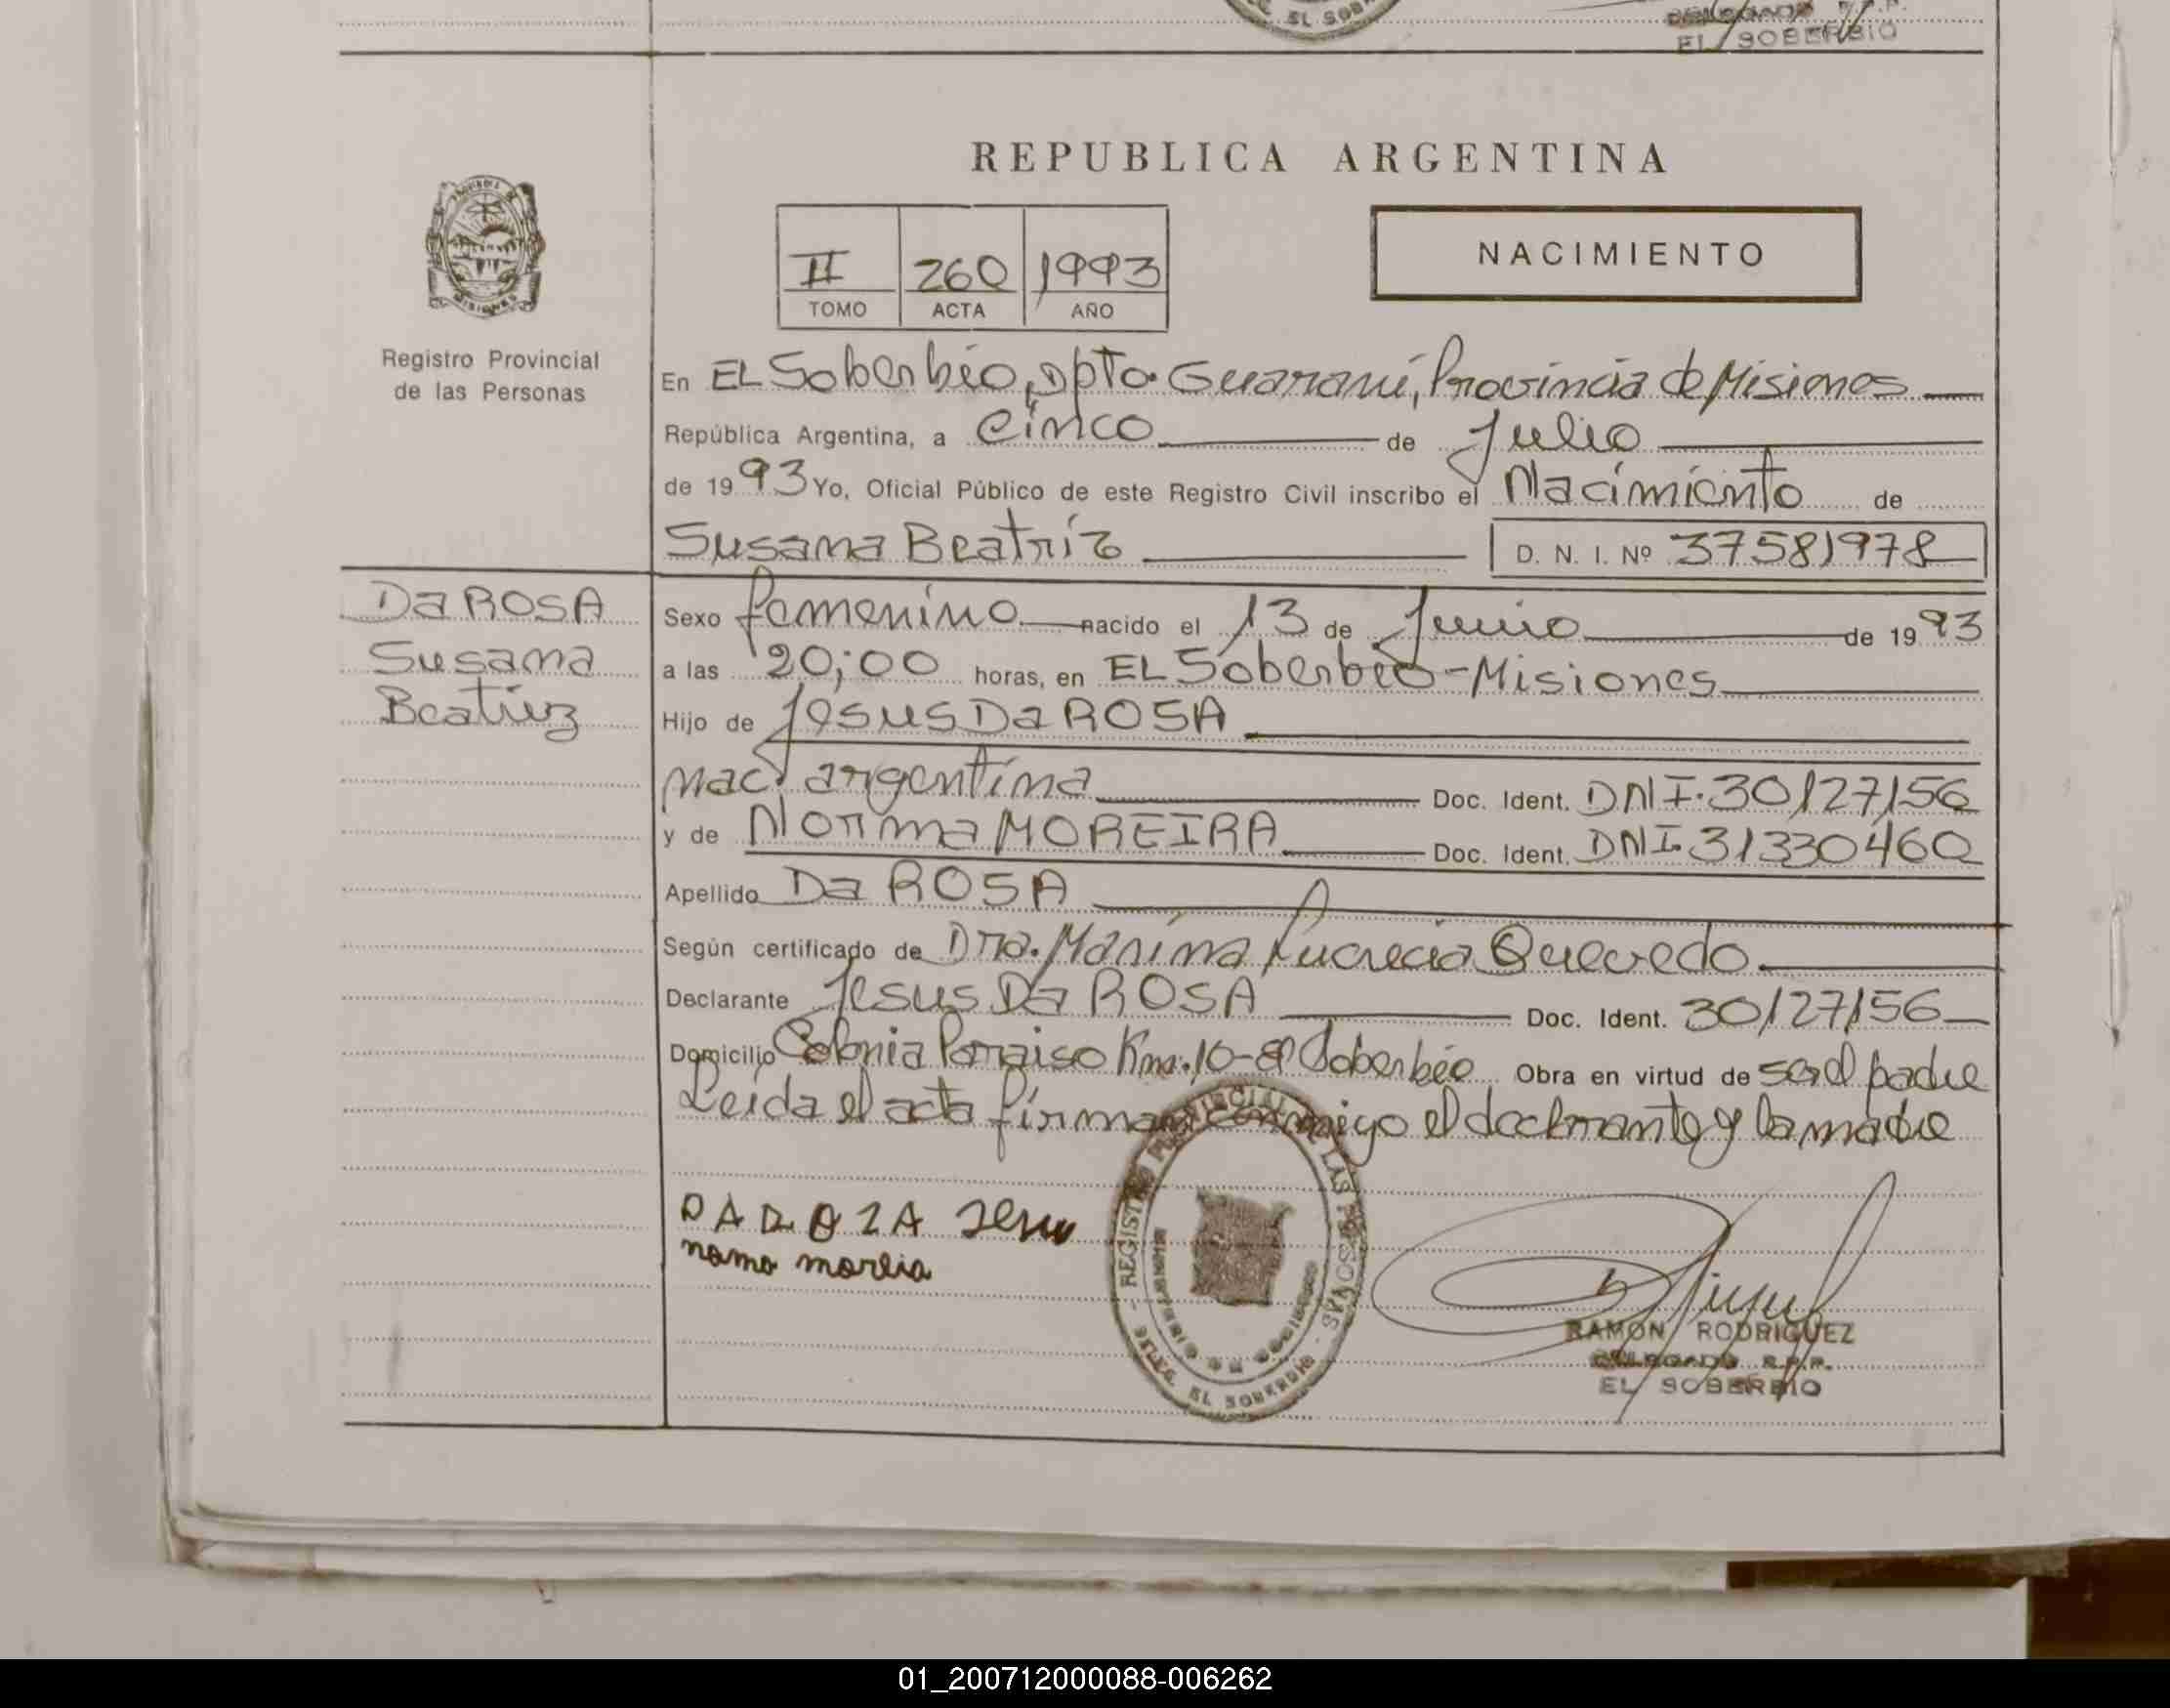 EL SOBERBIO
REPUBLICA ARGENTINA
II 260 1993
TOMO ACTA AÑO
NACIMIENTO
Registro Provincial
de las Personas
En EL Soberbio, Dpto. Guaraní, Provincia de Misiones
República Argentina, a Cinco de Julio
de 1993 Yo, Oficial Público de este Registro Civil inscribo el Nacimiento de
Susana Beatríz D. N. I. Nº 37581978
Da ROSA
Susana
Beatríz
Sexo femenino nacido el 13 de Junio de 1993
a las 20;00 horas, en EL Soberbio-Misiones
Hijo de Jesus Da ROSA
nac. argentina Doc. Ident. DNI.30127156
y de Norma MOREIRA Doc. Ident. DNI.31330460
Apellido Da ROSA
Según certificado de Dra. Marina Lucrecia Quevedo
Declarante Jesus Da ROSA Doc. Ident. 30127156
Domicilio Colonia Paraiso Km.10-El Soberbio Obra en virtud de ser el padre
Leida el acta firman conmigo el declarante y la madre
DA ROZA Jesu
REGISTRO PROVINCIAL DE LAS PERSONAS
DELEG. EL SOBERBIO
RAMON RODRIGUEZ
DELEGADO R.P.P.
EL SOBERBIO
01_200712000088-006262